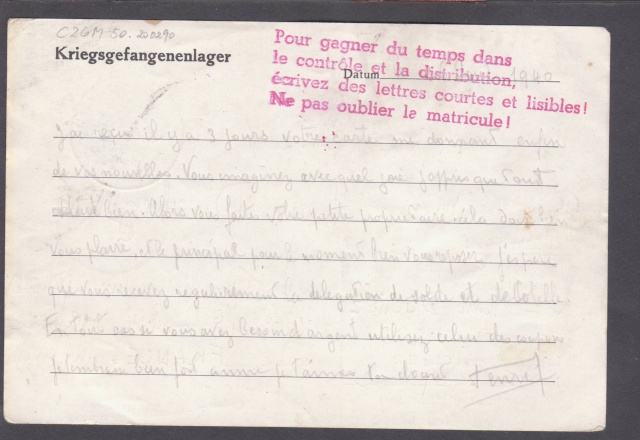 CZGM-50.200290
Kriegsgefangenenlager
Pour gagner du temps dans
le contrôle et la distribution,
écrivez des lettres courtes et lisibles!
Ne pas oublier le matricule!
Datum 1940
J'ai reçu il y a 3 jours votre carte me donnant enfin
de vos nouvelles. Vous imaginez avec quel joie j'appris que tout
bien. Alors petite propriétaire, cela doit
vous plaire, et le principal pour le moment bien vous reposer. J'espère
que vous recevez régulièrement la délégation de solde et
En tout cas si vous avez besoin d'argent utilisez celui des coupons
bien fort